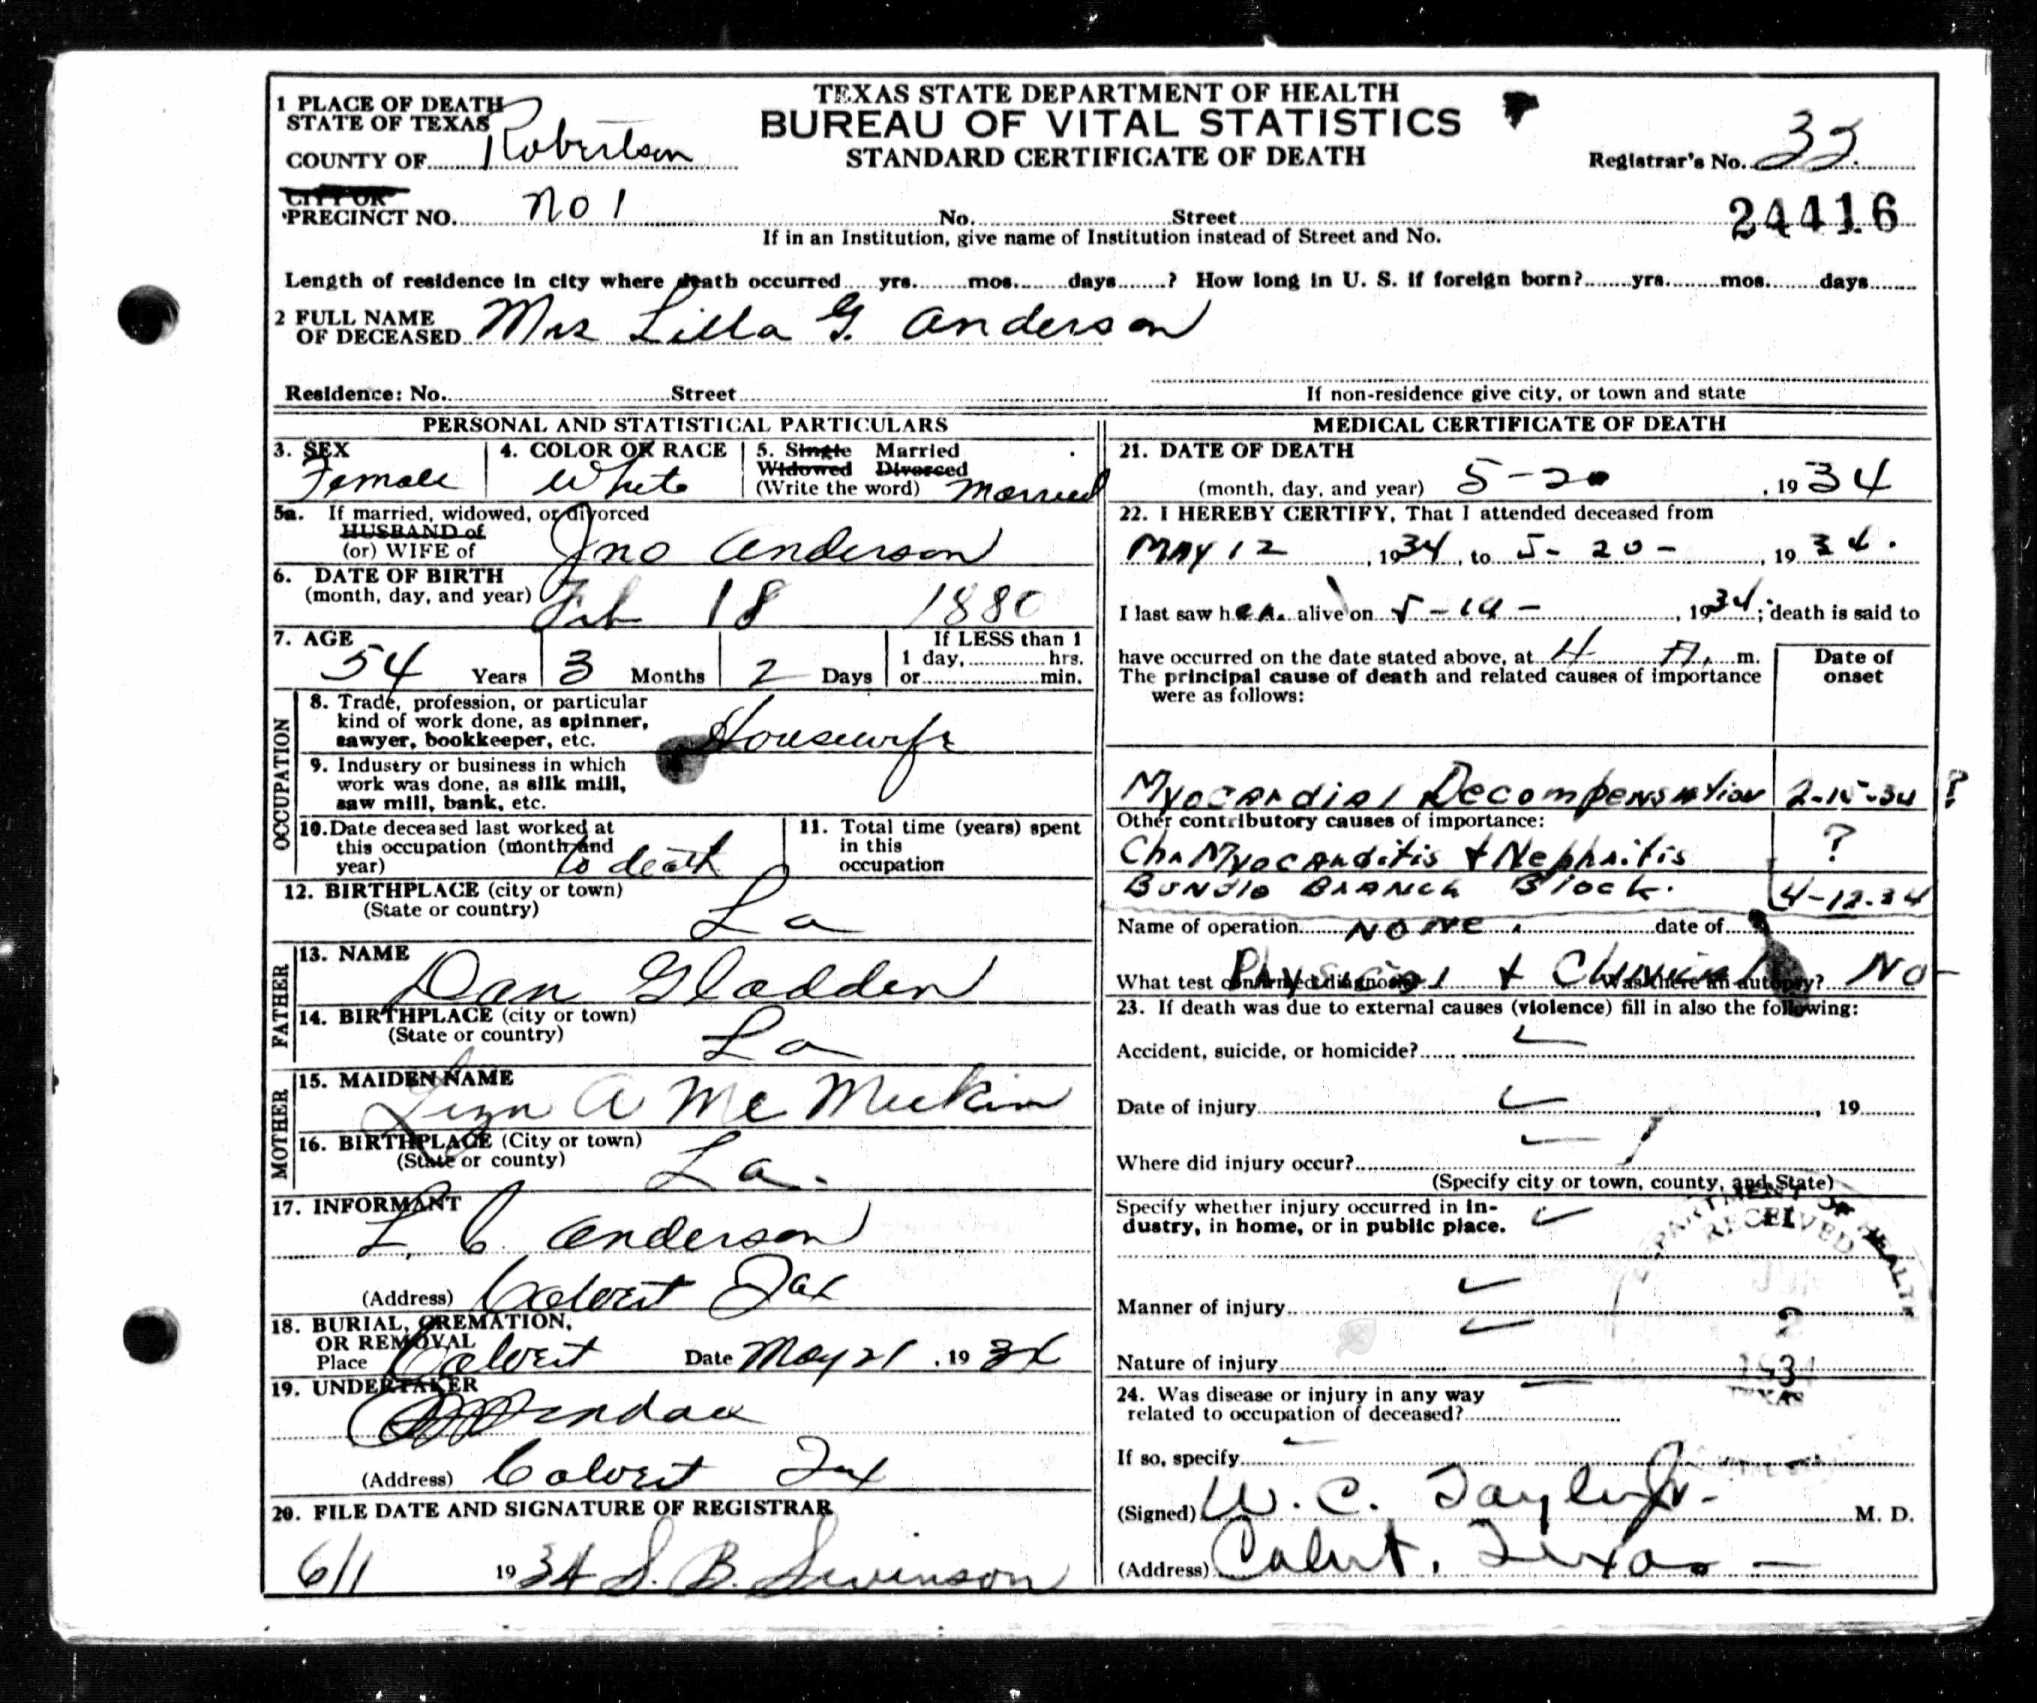 TEXAS STATE DEPARTMENT OF HEALTH
BUREAU OF VITAL STATISTICS
STANDARD CERTIFICATE OF DEATH
1 PLACE OF DEATH
STATE OF TEXAS
COUNTY OF Robertson
Registrar's No. 32
CITY OR
PRECINCT NO. No 1 No. Street
24416
If in an Institution, give name of Institution instead of Street and No.
Length of residence in city where death occurred yrs. mos. days ? How long in U. S. if foreign born? yrs. mos. days
2 FULL NAME
OF DECEASED Mrs Lilla G. Anderson
Residence: No. Street
If non-residence give city, or town and state
PERSONAL AND STATISTICAL PARTICULARS
3. SEX
Female
4. COLOR OR RACE
White
5. Single Married
Widowed Divorced
(Write the word) Married
5a. If married, widowed, or divorced
HUSBAND of
(or) WIFE of Jno Anderson
6. DATE OF BIRTH
(month, day, and year) Feb 18 1880
7. AGE
54 Years 3 Months 2 Days
If LESS than 1
1 day, hrs.
or min.
OCCUPATION
8. Trade, profession, or particular
kind of work done, as spinner,
sawyer, bookkeeper, etc. Housewife
9. Industry or business in which
work was done, as silk mill,
saw mill, bank, etc.
10. Date deceased last worked at
this occupation (month and
year) to death
11. Total time (years) spent
in this
occupation
12. BIRTHPLACE (city or town)
(State or country) La
FATHER
13. NAME
Dan Gladden
14. BIRTHPLACE (city or town)
(State or country) La
MOTHER
15. MAIDEN NAME
A Mc Meekin
16. BIRTHPLACE (City or town)
(State or county) La.
17. INFORMANT
L. C. Anderson
(Address) Calvert Tex
18. BURIAL, CREMATION,
OR REMOVAL
Place Calvert Date May 21, 1934
19. UNDERTAKER
(Address) Calvert Tex
20. FILE DATE AND SIGNATURE OF REGISTRAR
6/1 1934 S. B.
MEDICAL CERTIFICATE OF DEATH
21. DATE OF DEATH
(month, day, and year) 5-20, 1934
22. I HEREBY CERTIFY, That I attended deceased from
MAY 12, 1934, to 5-20-, 1934.
I last saw her alive on 5-19-, 1934; death is said to
have occurred on the date stated above, at 4 A. m.
The principal cause of death and related causes of importance
were as follows:
Date of
onset
Myocardial Decompensation 2-15-34 ?
Other contributory causes of importance:
Chr Myocarditis + Nephritis ?
Bundle Branch Block. 4-12-34
Name of operation None. date of
What test confirmed diagnosis? Physical + Clinical Was there an autopsy? No-
23. If death was due to external causes (violence) fill in also the following:
Accident, suicide, or homicide?
Date of injury , 19
Where did injury occur?
(Specify city or town, county, and State)
Specify whether injury occurred in in-
dustry, in home, or in public place.
Manner of injury
Nature of injury
24. Was disease or injury in any way
related to occupation of deceased?
If so, specify
(Signed) W. C. Taylor Jr. M. D.
(Address) Calvert, Texas
DEPARTMENT OF HEALTH
RECEIVED
TEXAS